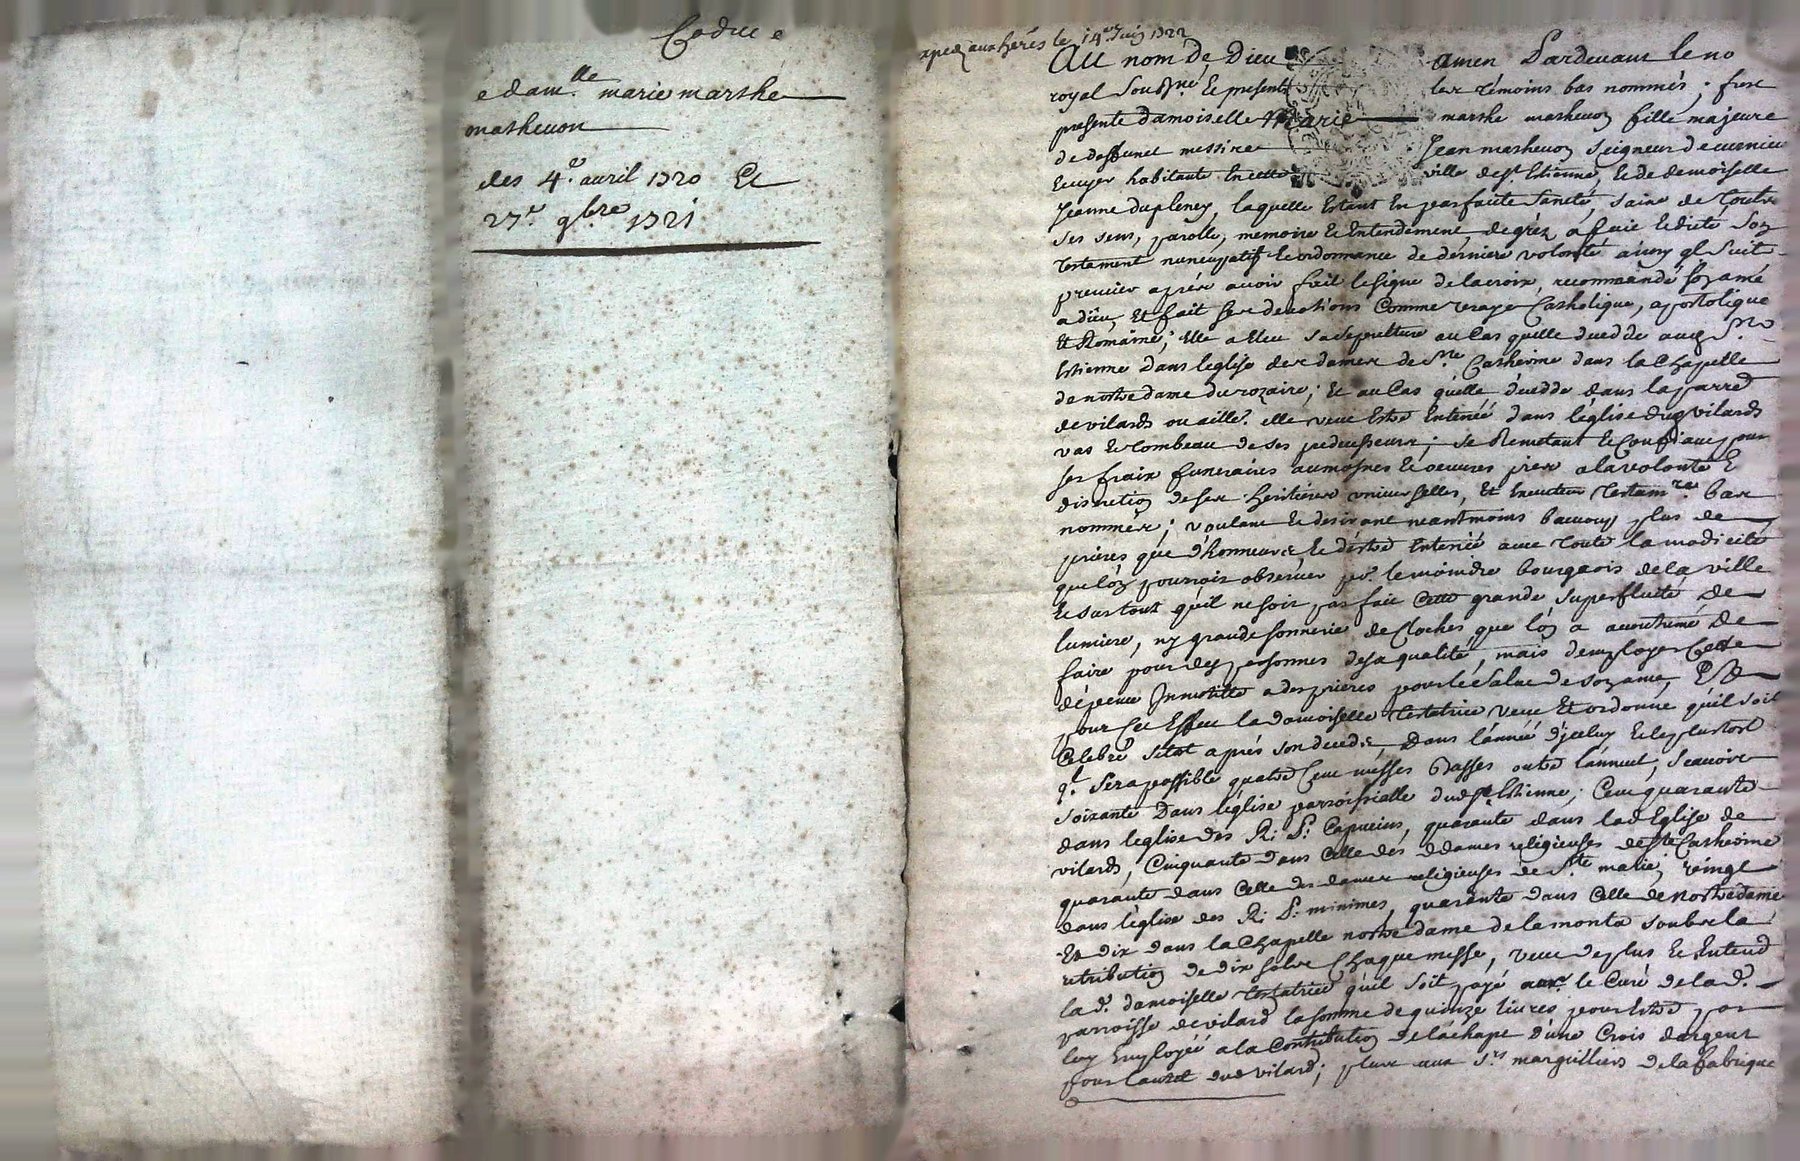 Codic e
e dam.lle marie marthe
matheuon
des 4.e auril 1720 Et
27.e 9bre 1721
exped aux herés le 14e Juin 1722
Au nom de Dieu amen Pardeuant le no
royal Soubsné Et present les témoins bas nommés; fust
presente damoiselle Marie marthe matheuon fille majeure
de deffunct messire Jean matheuon Seigneur de
Ecuyer habitante En cette ville de St Estienne, Et de demoiselle
Jeanne dupleney, laquelle Estant En parfaite Santé, Saine de Touts
Ses sens, parolle, memoire Et Entendement, de gréz a faie Et dicté Son
Testament nuncupatif Et ordonnance de derniere volonté ainsy ql Suit
premier aprés auoir fait le signe de la croix, recommandé son ame
a dieu, Et fait ses deuotions Comme vraye Catholique, apostolique
Et Romaine; Elle a Eleu sa sepulture au Cas quelle decedde aud St
Estienne dans leglise des dames de Ste Catherine dans la Chapelle
de nostre dame du rozaire; Et au Cas quelle decedde dans la parr
de vilards ou aille. elle veut Estre Enterrée dans leglise dud vilards
vas Et tombeau de ses predecesseurs; se Remetant Et Confiant pour
ses fraix funeraires aumosnes Et oeuures pies a la volonté Et
discretion de ses heritieres vniuerselles, Et Executeur testamre bas
nommés; voulant Et desirant neantmoins beaucoup plus de
prieres que d'honneurs Et destre Enterrée auec toute la modicité
que lon pourroit obseruer pr le moindre bourgeois de la ville
Et sur tout qu'il ne soit pas fait Cette grande Superfluité de
lumiere, ny grande sonnerie de Cloches que lon a acoutumé de
faire pour des personnes de sa qualité, mais demployer Cette
dépence Inmutille a des prieres pour le salut de son ame, Et
pour Cet Effect la damoiselle testatrice veut Et ordonne qu'il soit
Celebré sitot aprés son decedz, dans l'année d'jceluy Et le plustost
ql Sera possible quatre Cent messes basses outre l'annuel, Scauoir
soixante Dans l'église parroissialle dud St Estienne; Cent quarante
dans leglise des R: P: Capucins, quarante dans lad Eglise de
vilards, Cinquante dans Celle des dames religieuses de Ste Catherine
quarante dans Celle des dames religieuses de Ste marie; vingt
dans l'église des R: P: minimes, quarante dans Celle de nostre dame
Et dix dans la Chapelle nostre dame de la monta soubs la
retribution de dix sols Chaque messe, veut de plus Et Entend
la d. damoiselle testatrice qu'il soit payé au sr le Curé de la d.
parroisse de vilard la somme de quinze liures pour Estre par
luy Employée a la Contribution de lachapt d'une Croix dargent
pour lautel dud vilard; plus aux Srs marguilliers de la fabrique